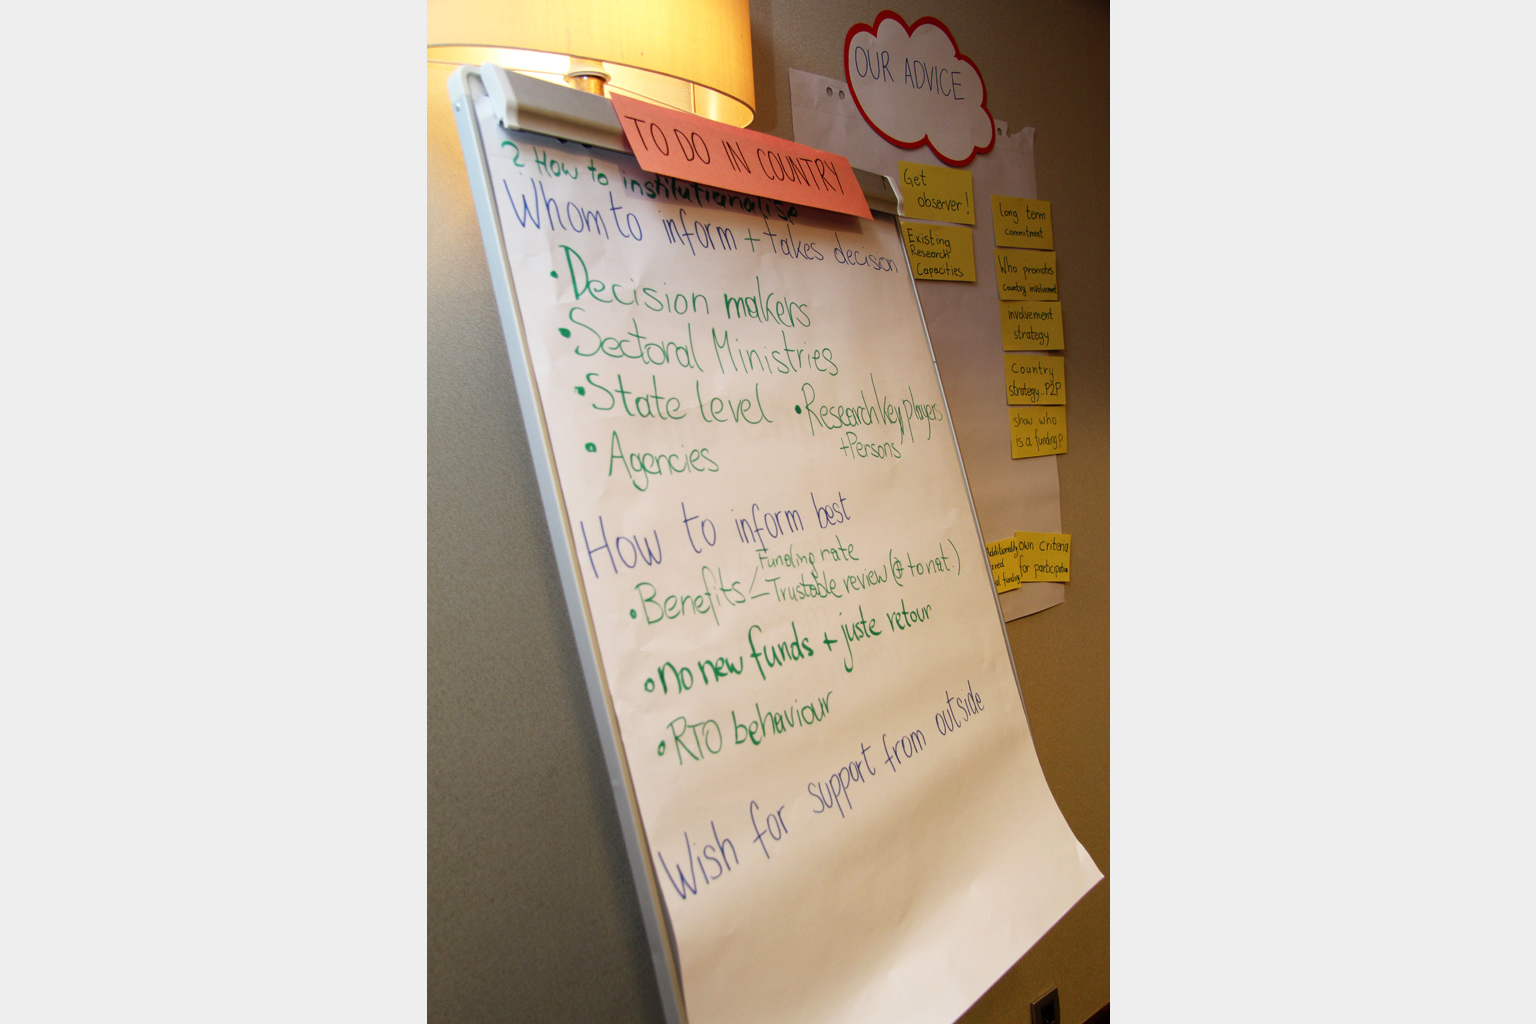 TO DO IN COUNTRY
? How to institutionalise
Whom to inform + takes decision
• Decision makers
• Sectoral Ministries
• State level • Research key players
+ Persons
• Agencies
How to inform best
Funding rate
• Benefits - Trustable review (≠ to nat.)
• no new funds + juste retour
• RTO behaviour
Wish for support from outside
OUR ADVICE
Get
observer!
Existing
Research
Capacities
long term
commitment
Who promotes
country involvement
involvement
strategy
Country
strategy P2P
show who
is a funding p
Additionally
funding
own criteria
for participation